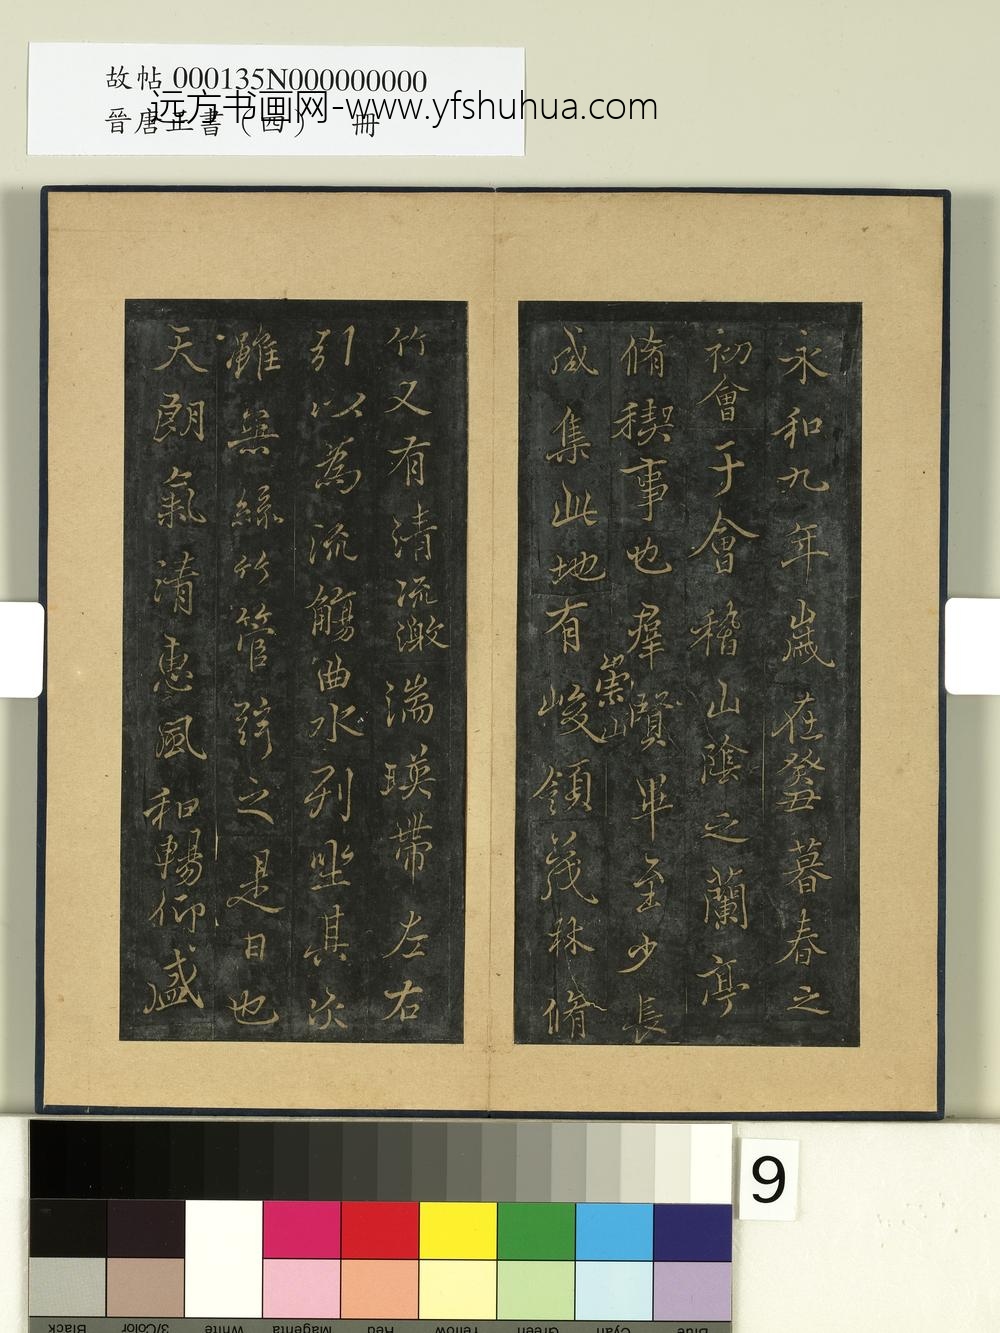 故帖 000135N000000000
远方书画网-www.yfshuhua.com
晉唐正書（四） 冊
永和九年歲在癸丑暮春之
初會于會稽山陰之蘭亭
脩稧事也羣賢畢至少長
咸集此地有峻領茂林脩
崇山
竹又有清流激湍暎帶左右
引以為流觴曲水列坐其次
雖無絲竹管絃之
是日也
天朗氣清惠風和暢仰
9
Black
3/Color
White
Magenta
Red
Yellow
Green
Cyan
Blue